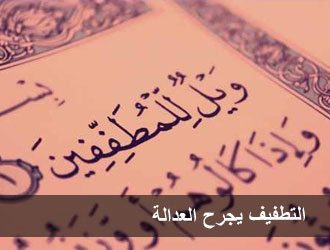 وَيْلٌ لِّلْمُطَفِّفِينَ
١
وَإِذَا كَالُوهُمْ أَو
التطفيف يجرح العدالة